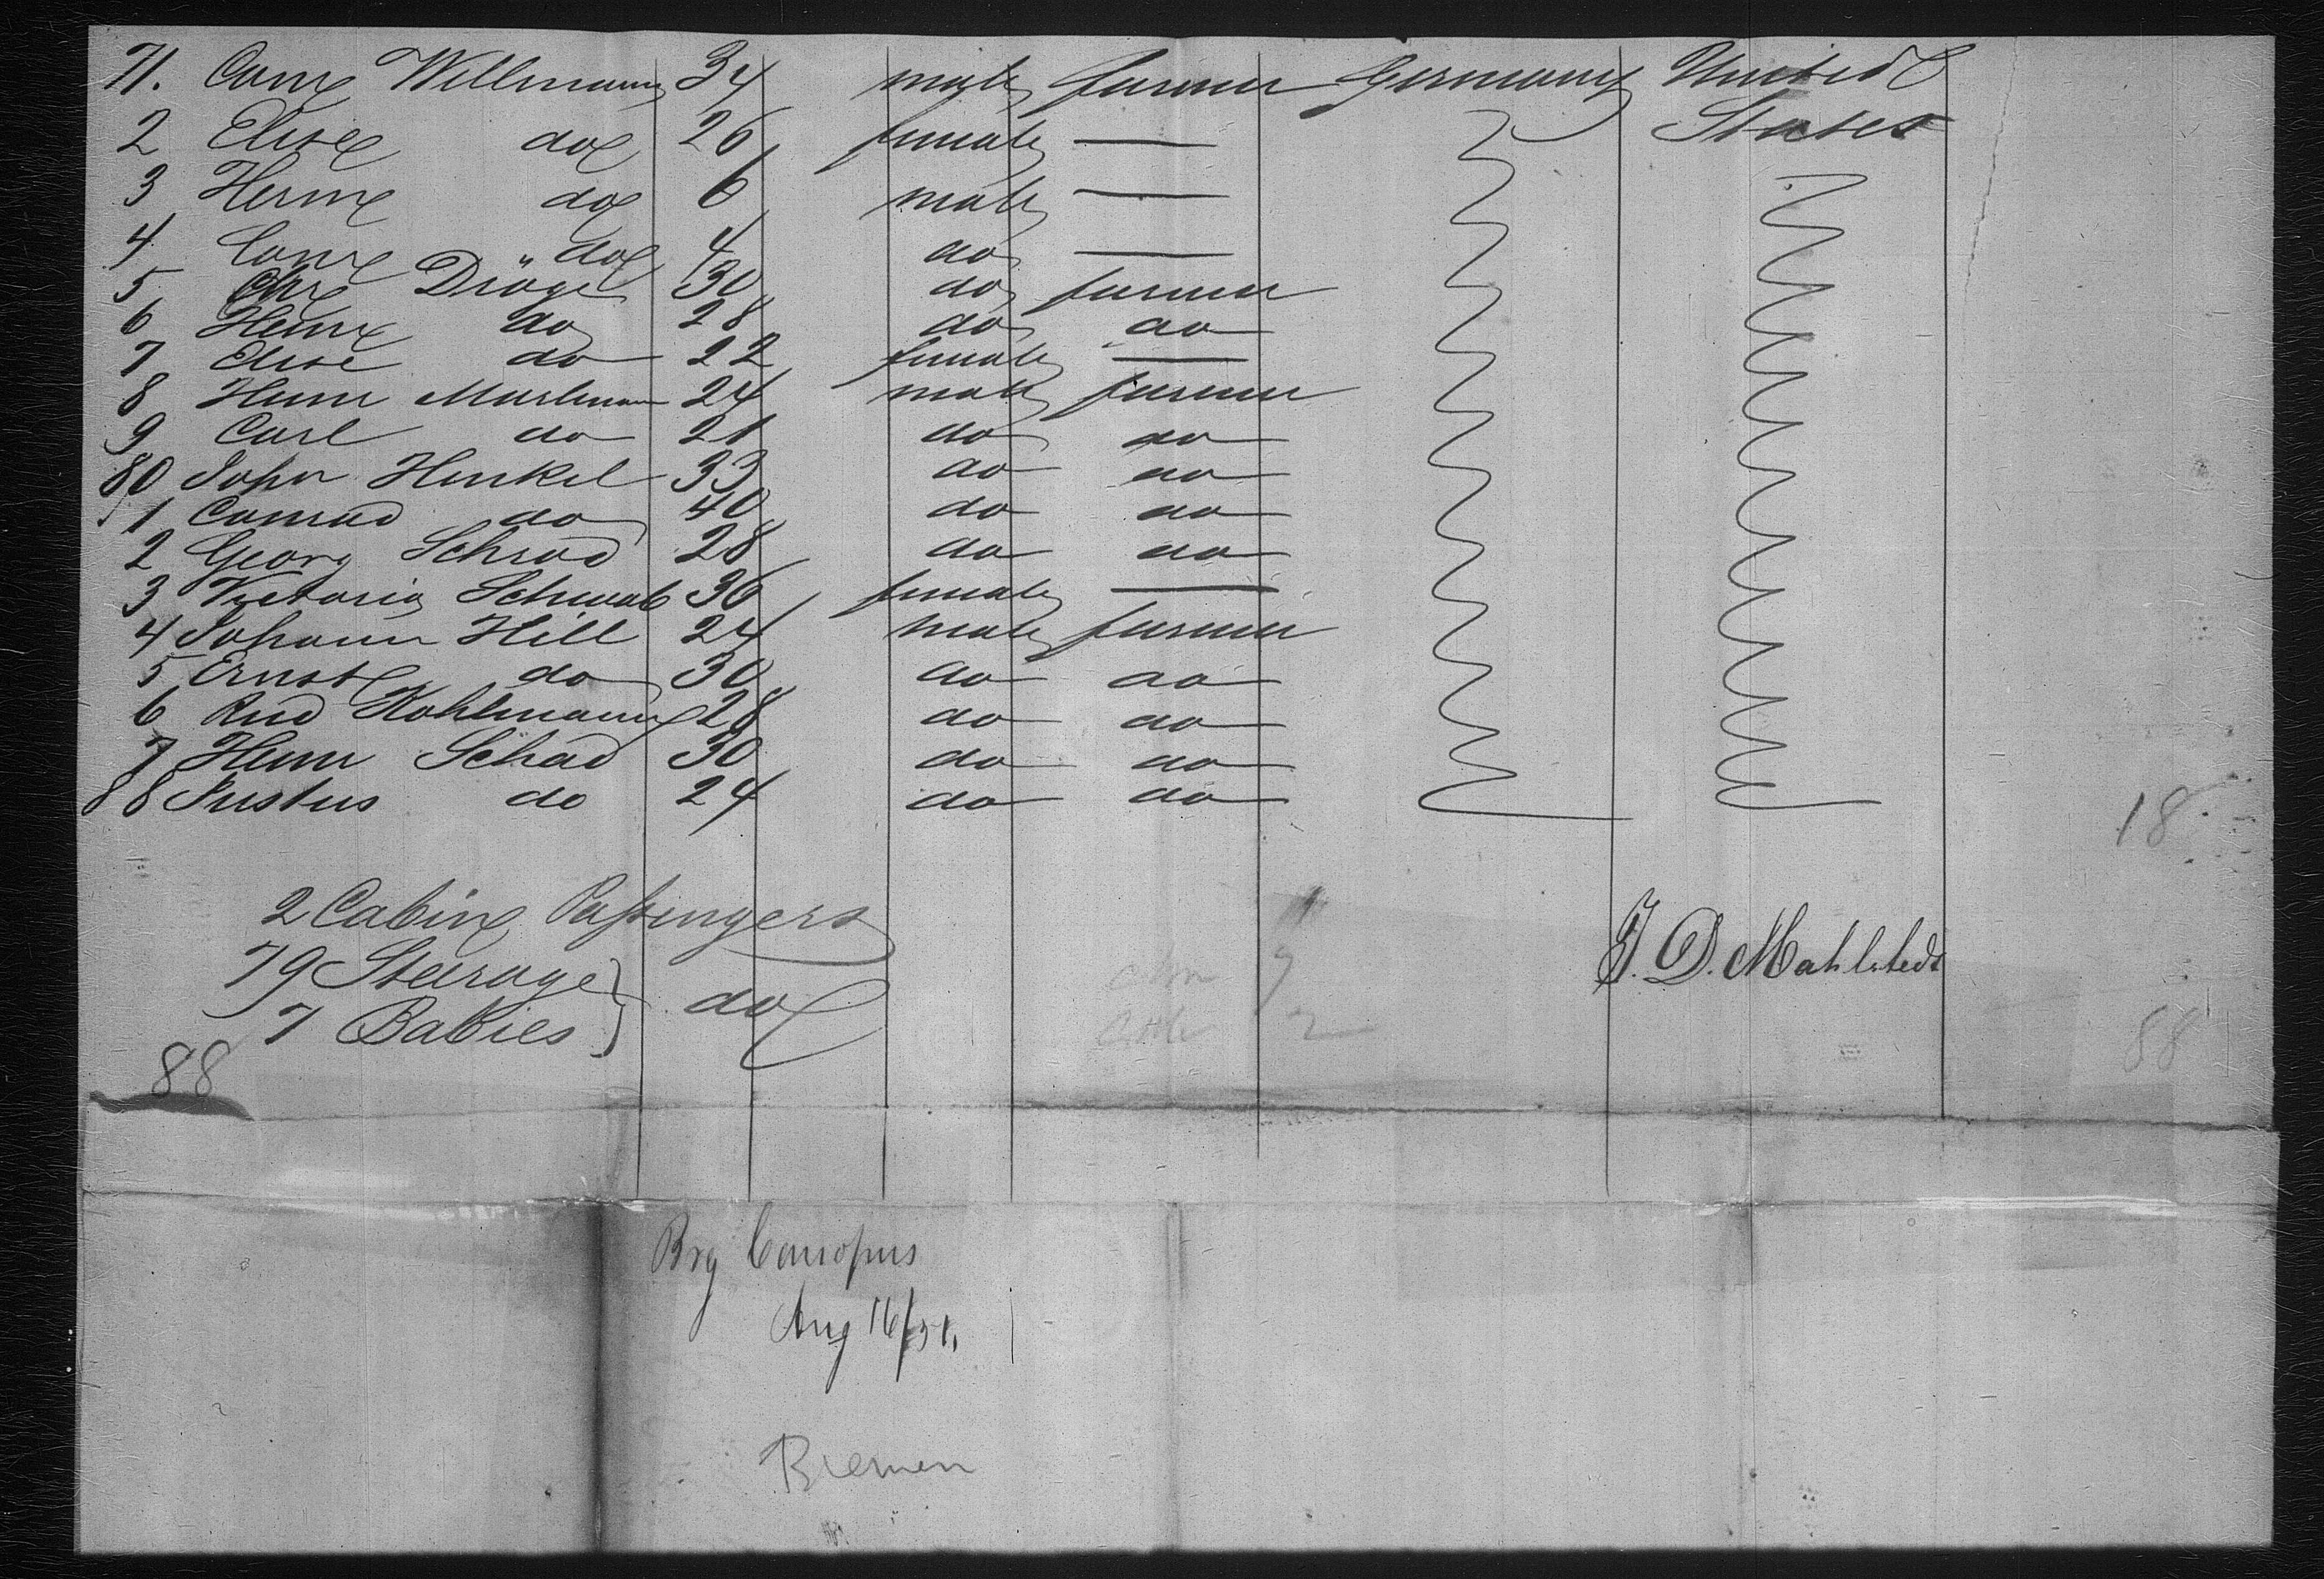 71. Conr Willmann 34 male farmer Germany United
2 Elise do 26 female — States
3 Herm do 6 male —
4 Conr do 4 do —
5 Chr Dröge 30 do farmer
6 Heinr do 28 do do
7 Elise do 22 female —
8 Heinr 24 male farmer
9 Carl do 21 do do
80 John Henkel 33 do do
1 Conrad do 40 do do
2 Georg Schrod 28 do do
3 Victoria Schwab 36 female —
4 Johann Hill 24 male farmer
5 Ernst do 30 do do
6 Rud Kohlmann 28 do do
7 Heinr Schad 30 do do
88 Justus do 24 do do
18
2 Cabin Passengers
79 Steerage } do
7 Babies
88
J. D. Mahlstedt
9
2
88
Brg Canopus
Aug 16/51.
Bremen